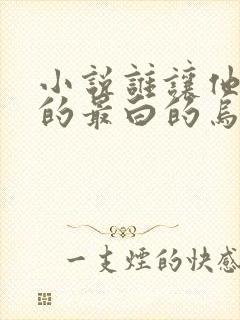 小说誰讓他
的最白的烏
一支煙的快感